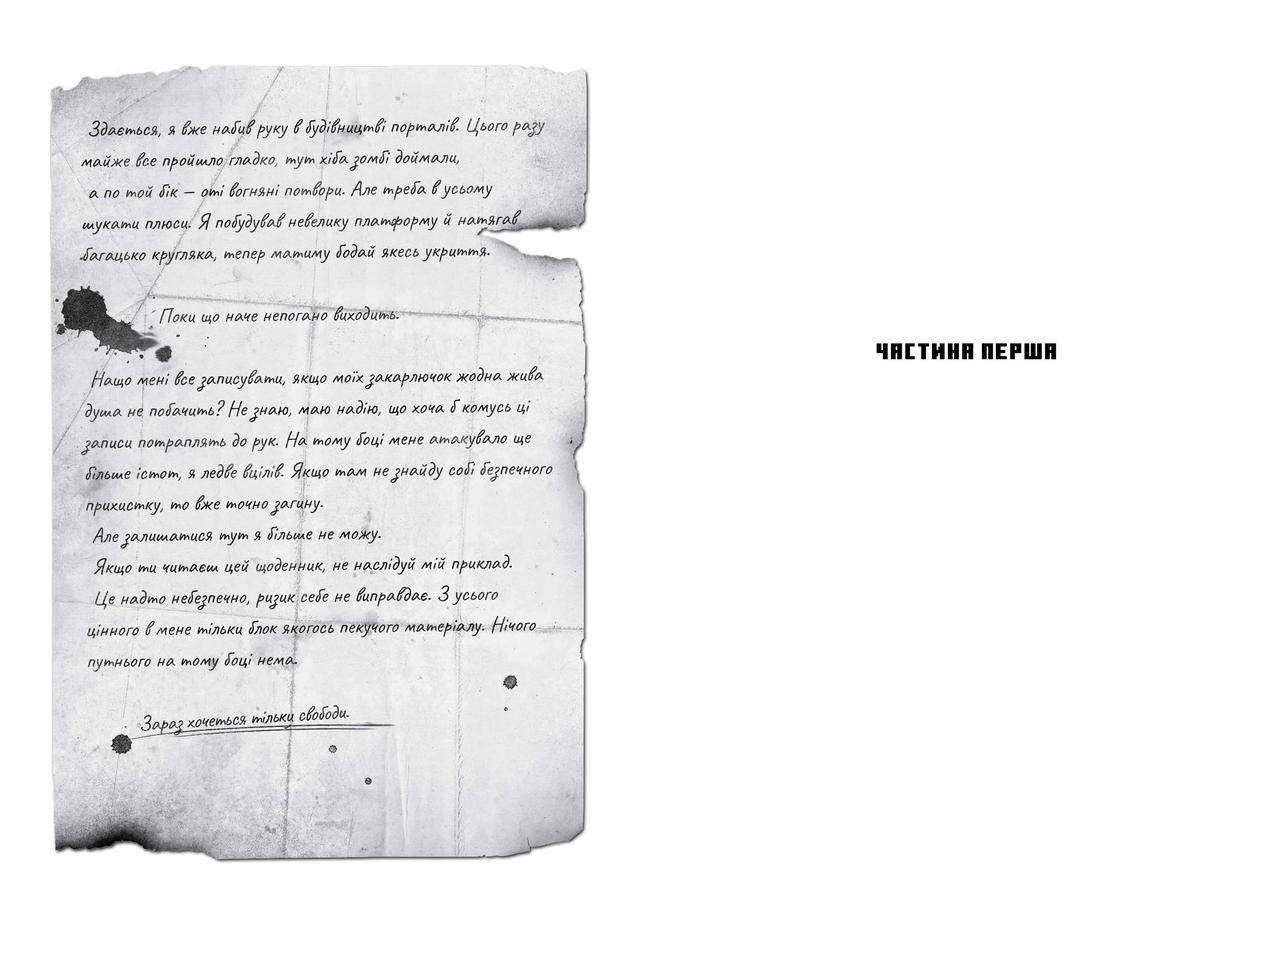 Здається, я вже набив руку в будівництві порталів. Цього разу
майже все пройшло гладко, тут хіба зомбі доймали,
а по той бік — оті вогняні потвори. Але треба в усьому
шукати плюси. Я побудував невелику платформу й натягав
багацько кругляка, тепер матиму бодай якесь укриття.
Поки що наче непогано виходить.
Нащо мені все записувати, якщо моїх закарлючок жодна жива
душа не побачить? Не знаю, маю надію, що хоча б комусь ці
записи потраплять до рук. На тому боці мене атакувало ще
більше істот, я ледве вцілів. Якщо там не знайду собі безпечного
прихистку, то вже точно загину.
Але залишатися тут я більше не можу.
Якщо ти читаєш цей щоденник, не наслідуй мій приклад.
Це надто небезпечно, ризик себе не виправдає. З усього
цінного в мене тільки блок якогось пекучого матеріалу. Нічого
путнього на тому боці нема.
Зараз хочеться тільки свободи.
ЧАСТИНА ПЕРША